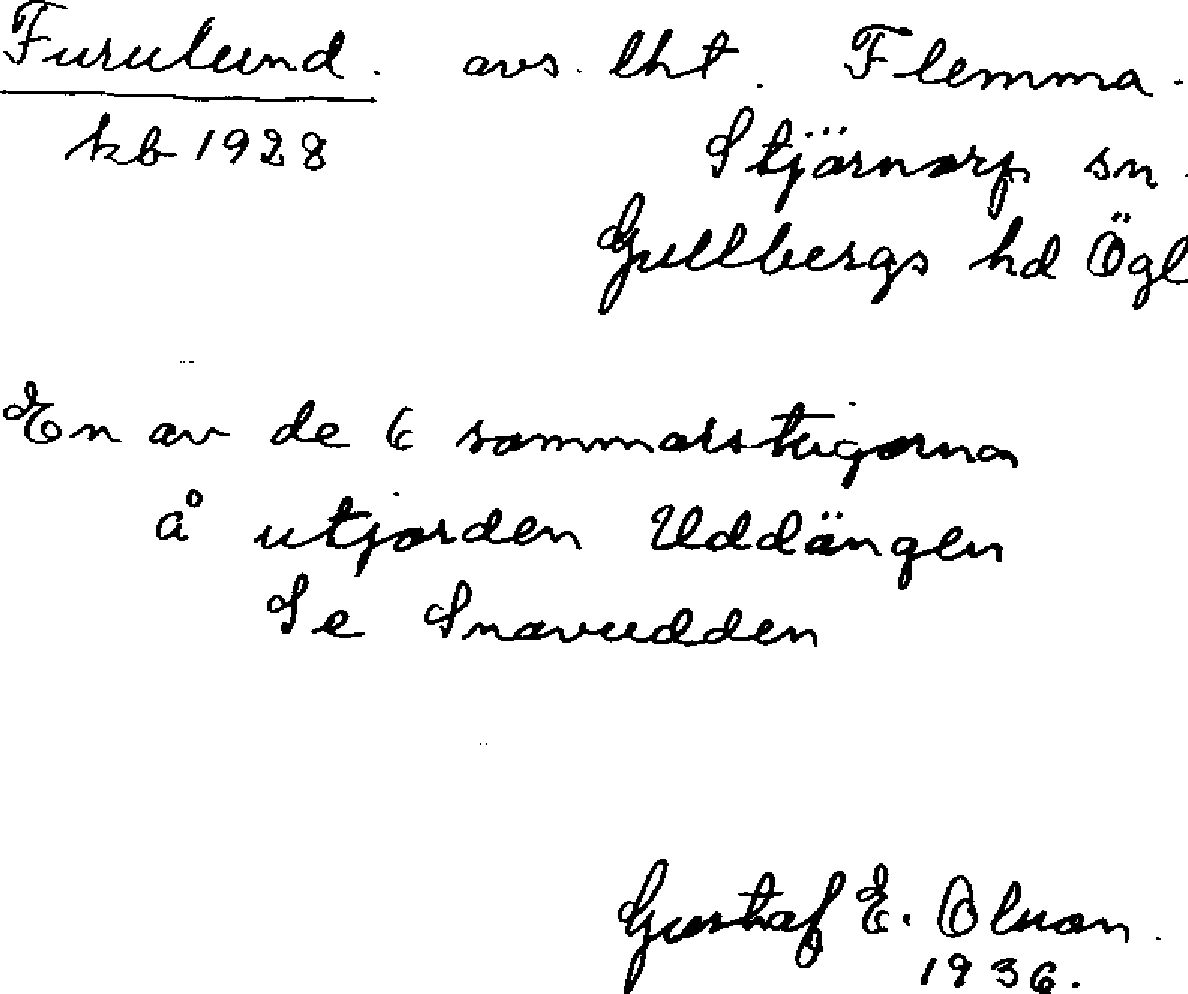 Furulund. avs. lht. Flemma.
kb 1928 Stjärnorp sn.
Gullbergs hd Ögl
En av de 6 sommarstugorna
å utjorden Uddängen
Se Snavudden
Gustaf E. Olson.
1936.